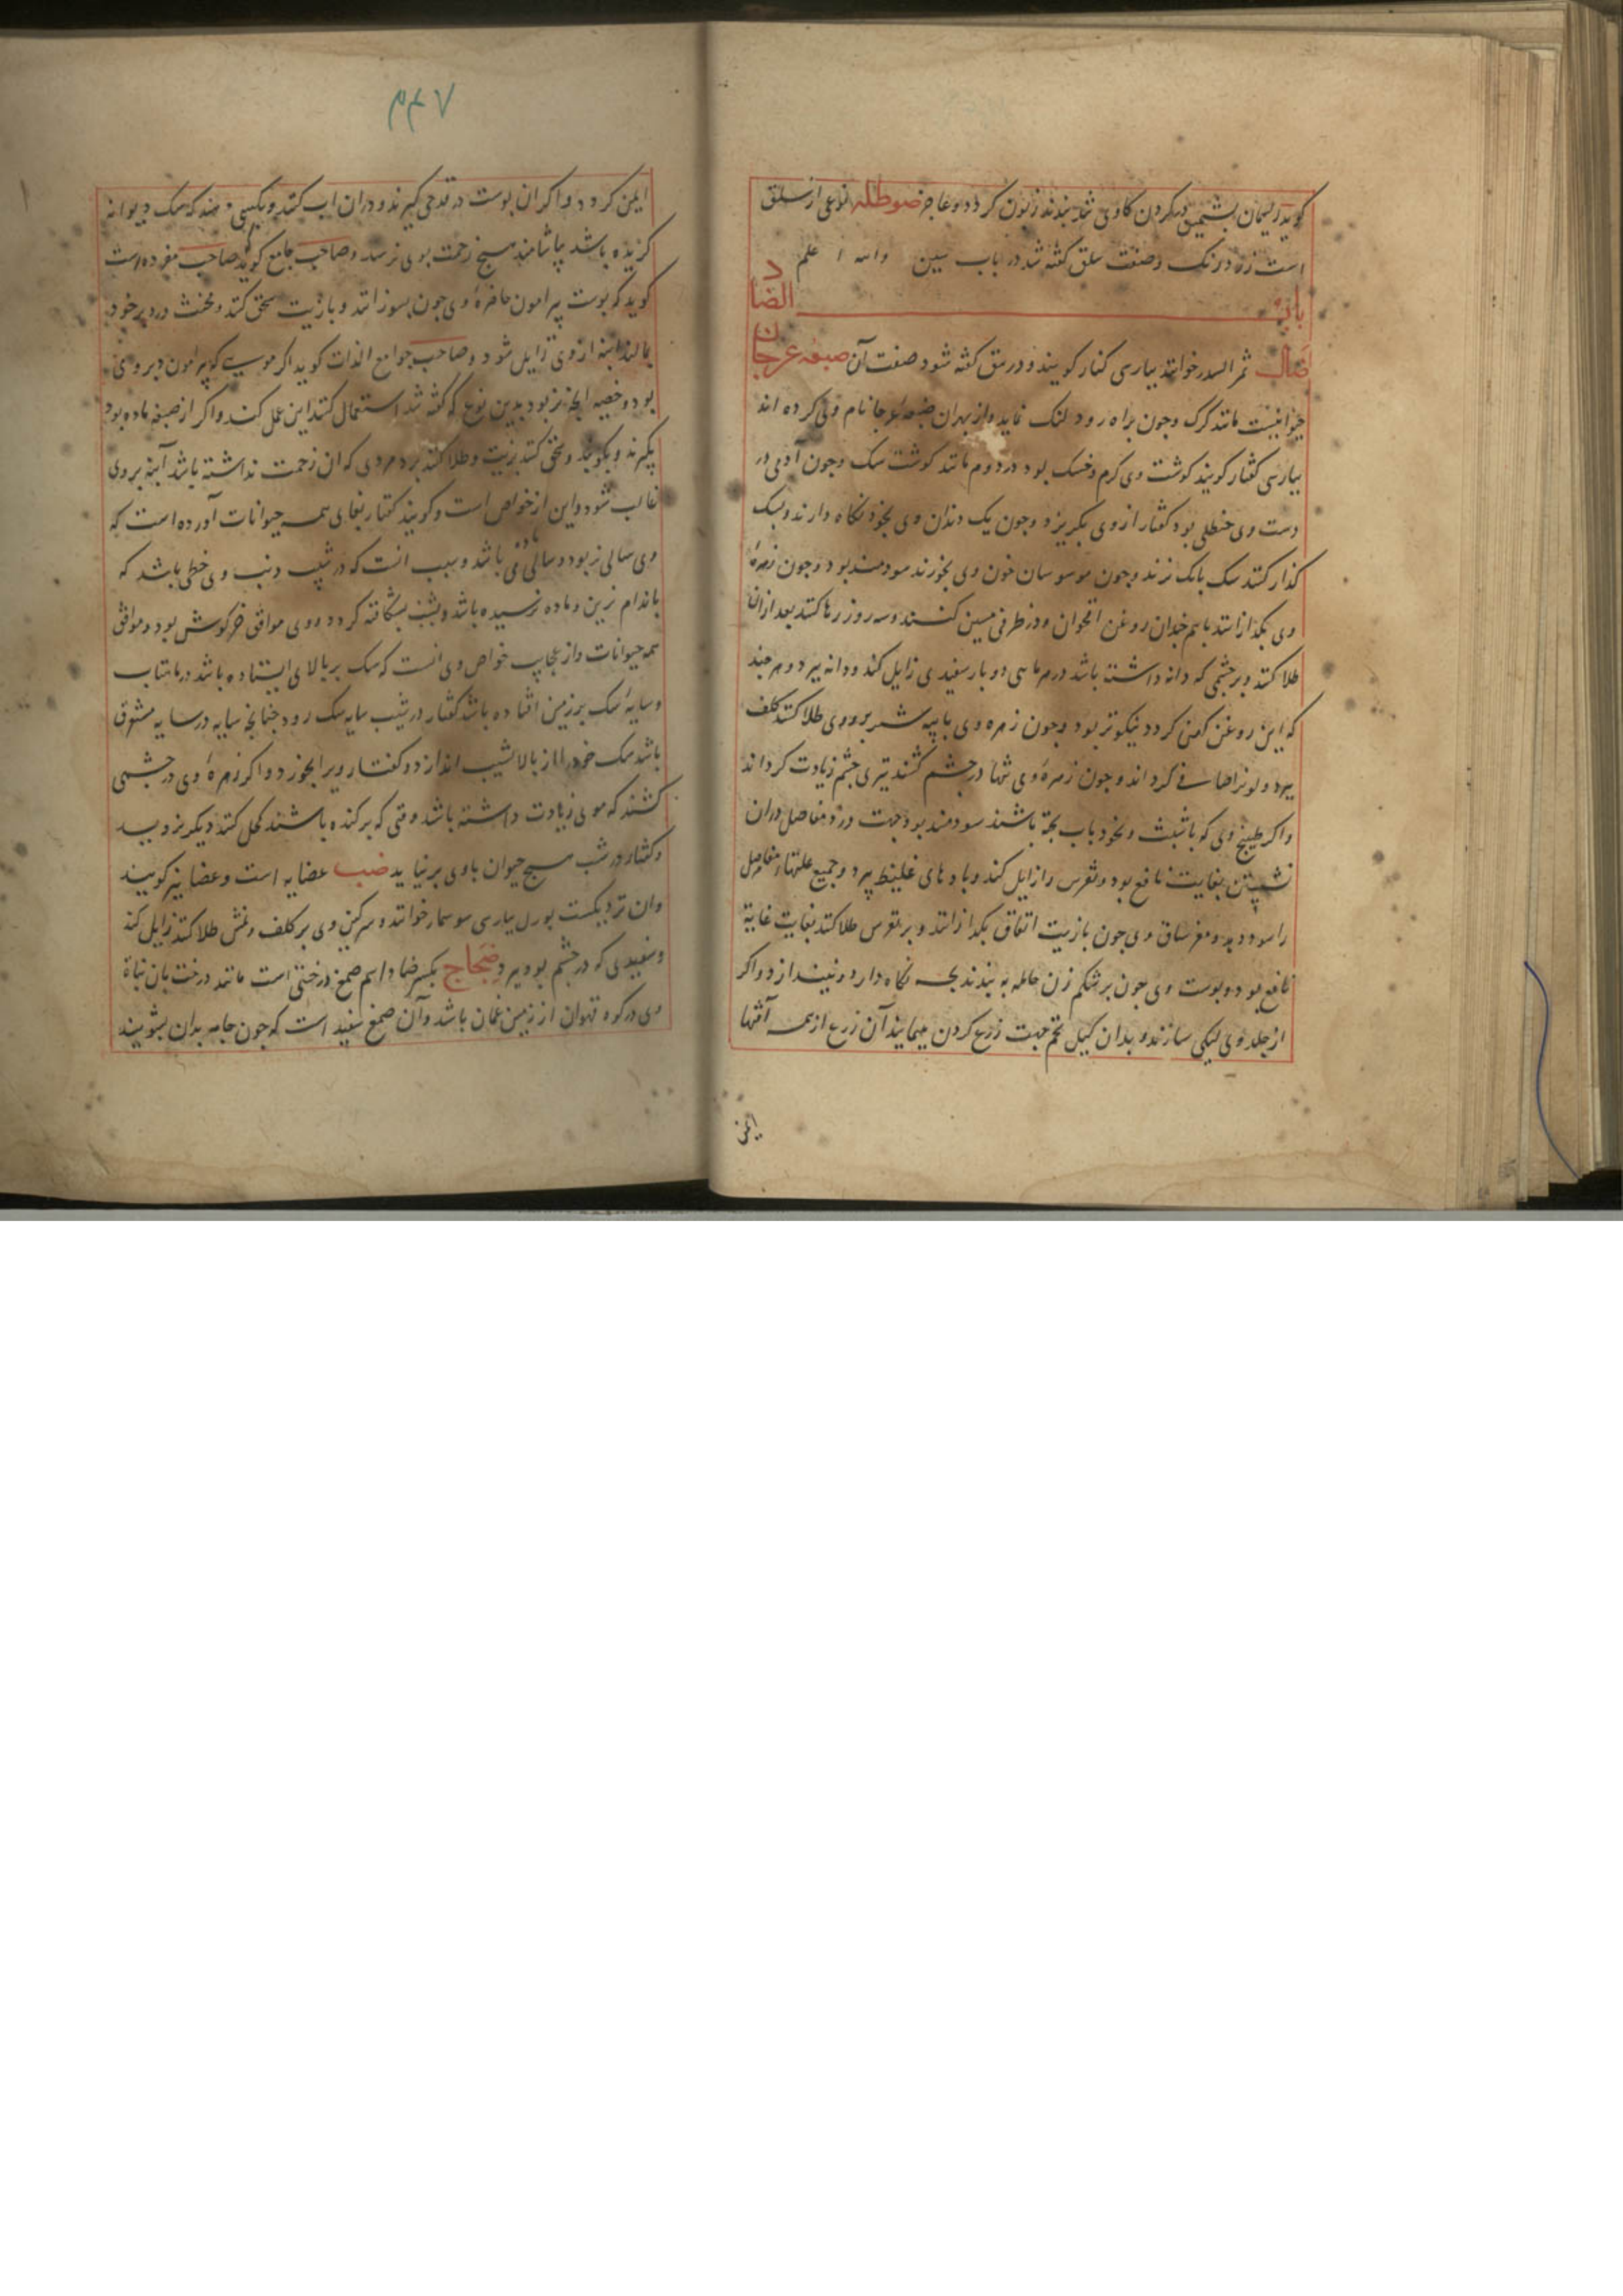 گویند ریسمان بشمین در کردن کاوی بندند زبون کردد و عاجز صوطله نوعی از سلق
است زه در نک و صفت سلق گفته شد در باب سین والله اعلم
باب الضاد
ضال ثمر السدر خوانند بپارسی کنار کویند و در نبق گفته شود صفت آن ضبعه عرجان
حیوانیست مانند کرک و چون براه رود لنک نماید و از بهر آن ضبعه عرجا نام وی کرده اند
بپارسی کفتار کویند کوشت وی کرم و خشک بود در دوم مانند کوشت سک و چون آدمی در
دست وی حنظلی بود کفتار از وی بکریزد و چون یک دندان وی بخود نکاه دارند و بسک
کذار کنند سک بانک نزند و چون موسوسان خون وی بخورند سودمند بود و چون زهرهٔ
وی بکدازانند با هم چندان روغن اقحوان و در ظرفی مسین کنند و سه روز رها کنند بعد ازان
طلا کنند بر چشمی که دانه داشته باشد در هر ماهی دو بار سفیدی زایل کند و دانه ببرد و هر چند
که این روغن کهن کردد نیکوتر بود و چون زهره وی با پیه شیر بر روی طلا کنند کلف
ببرد و لونرا صافی کرداند و چون زهرهٔ وی تنها در چشم کشند تیزی چشم زیادت کرداند
و اکر طبیخ وی که با شبت و نخود باب پخته باشند سودمند بود جهت درد مفاصل دران
نشستن بغایت نافع بود و نقرس را زایل کند و بادهای غلیظ ببرد و جمیع علتهاء مفاصل
را سود دهد و مغز ساق وی چون با زیت انفاق بکدازانند و بر نقرس طلا کنند بغایت غایة
نافع بود و پوست وی چون بر شکم زن حامله به بندند بچه نکاه دارد و نیندازد و اکر
از جلد وی کیلی سازند و بدان کیل تخم جهت زرع کردن بپیمایند آن زرع از همه آفتها
ایمن
۴۴۷
ایمن کردد و اکر ان پوست در قدحی کیرند و دران اب کنند و بکسی دهند که سک دیوانه
کزیده باشد بیاشامند هیچ زحمت بوی نرسد و صاحب جامع کوید صاحب مفرده است
کوید که پوست پیرامون خاصرهٔ وی چون بسوزانند و با زیت سحق کنند و مخنث در دبر خود
بمالند ابنه از وی زایل شود و صاحب جوامع الذات کوید اکر مویی که پیرامون دبر وی
بود و خصیه انچه نر بود بدین نوع که گفته شد استعمال کنند این عمل کند و اکر از ضبعه ماده بود
بکیرند و بکوبند و سحق کنند بزیت و طلا کنند بر دبر مردی که ان زحمت نداشته باشد ابنه بر وی
غالب شود و این از خواص است و کویند کفتار بغای همه حیوانات آورده است که
وی سالی نر بود و سالی ماده می باشد و سبب انست که در شیب ذنب وی خطی باشد که
باندام نرین و ماده نرسیده باشد و بشب شکافته کردد و وی موافق خرکوش بود و موافق
همه حیوانات و از عجایب خواص وی انست که سک بر بالای ایستاده باشد در ماهتاب
و سایهٔ سک بر زمین افتاده باشد کفتار در شیب سایه سک رود چنانچه سایه در سایه مشرق
باشد سک خود را از بالا بشیب اندازد و کفتار ویرا بخورد و اکر زهرهٔ وی در چشمی
کشند که موی زیادت داشته باشد وقتی که برکنده باشند کحل کنند دیکر نروید
و کفتار در شب هیچ حیوان باوی برنیاید ضب عضایه است و عضا نیز کویند
وان نزدیکست بورل بپارسی سوسمار خوانند و سرکین وی بر کلف و نمش طلا کنند زایل کند
و سفیدی که در چشم بود ببرد ضجاج بکسر ضاد اسم صمغ درختی است مانند درخت بان نبات
وی در کوه قهوان از زمین عمان باشد و آن صمغ سفید است که چون جامه بدان بشویند